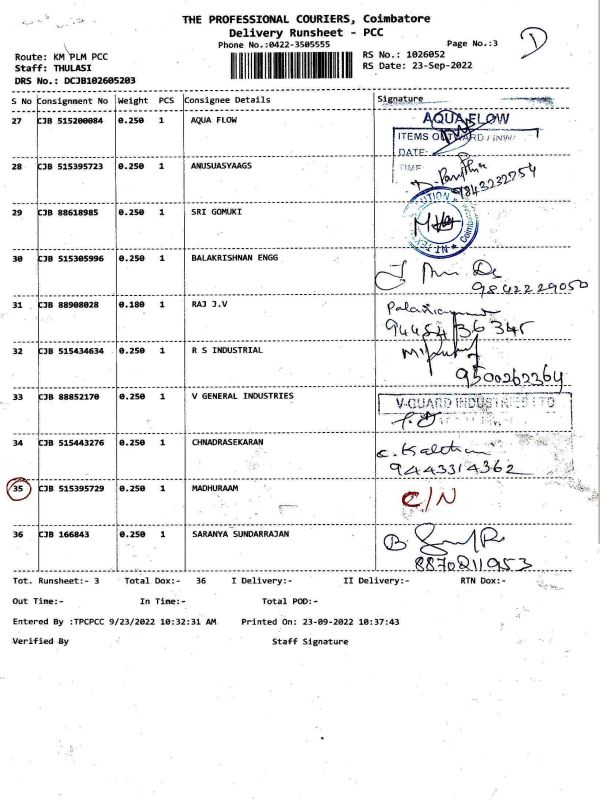 THE PROFESSIONAL COURIERS, Coimbatore
Delivery Runsheet - PCC
Phone No.:0422-3505555 Page No.:3 D
Route: KM PLM PCC RS No.: 1026052
Staff: THULASI RS Date: 23-Sep-2022
DRS No.: DCJB102605203
S No Consignment No Weight PCS Consignee Details Signature
27 CJB 515200084 0.250 1 AQUA FLOW AQUA FLOW
ITEMS OUTWARD / INW
DATE:
TIME
28 CJB 515395723 0.250 1 ANUSUASYAAGS 9843232754
29 CJB 88618985 0.250 1 SRI GOMUKI
30 CJB 515305996 0.250 1 BALAKRISHNAN ENGG
9842229050
31 CJB 88908028 0.180 1 RAJ J.V
94454 36 345
32 CJB 515434634 0.250 1 R S INDUSTRIAL
9500262364
33 CJB 88852170 0.250 1 V GENERAL INDUSTRIES V-GUARD INDUSTRIES LTD
34 CJB 515443276 0.250 1 CHNADRASEKARAN
9443314362
35 CJB 515395729 0.250 1 MADHURAAM C/N
36 CJB 166843 0.250 1 SARANYA SUNDARRAJAN B
8870211953
Tot. Runsheet:- 3 Total Dox:- 36 I Delivery:- II Delivery:- RTN Dox:-
Out Time:- In Time:- Total POD:-
Entered By :TPCPCC 9/23/2022 10:32:31 AM Printed On: 23-09-2022 10:37:43
Verified By Staff Signature